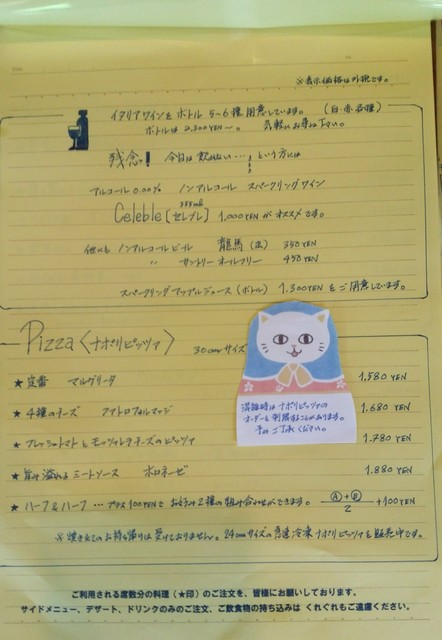 ※表示価格は外税です。
イタリアワインを ボトル 5〜6種 用意しています。 (白・赤 各種)
ボトルは 2,300YEN〜。 気軽にお尋ね下さい。
残念! 今日は 飲めない…! という方には
アルコール 0.00% ノンアルコール スパークリング ワイン
Celeble [セレブレ] 355ml 1,000YEN が オススメ です。
他にも ノンアルコールビール 龍馬 350YEN
〃 サントリー オールフリー 450YEN
スパークリングアップルジュース (ボトル) 1,300YEN を ご用意しています。
Pizza 〈ナポリピッツァ〉 30cmサイズ
★ 定番 マルゲリータ 1,580YEN
★ 4種のチーズ クアトロフォルマッジ 1,680YEN
★ フレッシュトマトと モッツァレラチーズの ピッツァ 1,780YEN
★ 旨み溢れる ミートソース ボロネーゼ 1,880YEN
★ ハーフ&ハーフ … プラス100YENで お好み2種の組み合わせができます。 Ⓐ+Ⓑ/2 +100YEN
混雑時は ナポリピッツァの
オーダーを 制限することがあります。
予め ご了承ください。
※ 焼き立ての お持ち帰りは 受けておりません。24cmサイズの 急速冷凍ナポリピッツァを 販売中です。
ご利用される席数分の料理(★印)のご注文を、皆様にお願いしております。
サイドメニュー、デザート、ドリンクのみのご注文、ご飲食物の持ち込みは くれぐれもご遠慮ください。